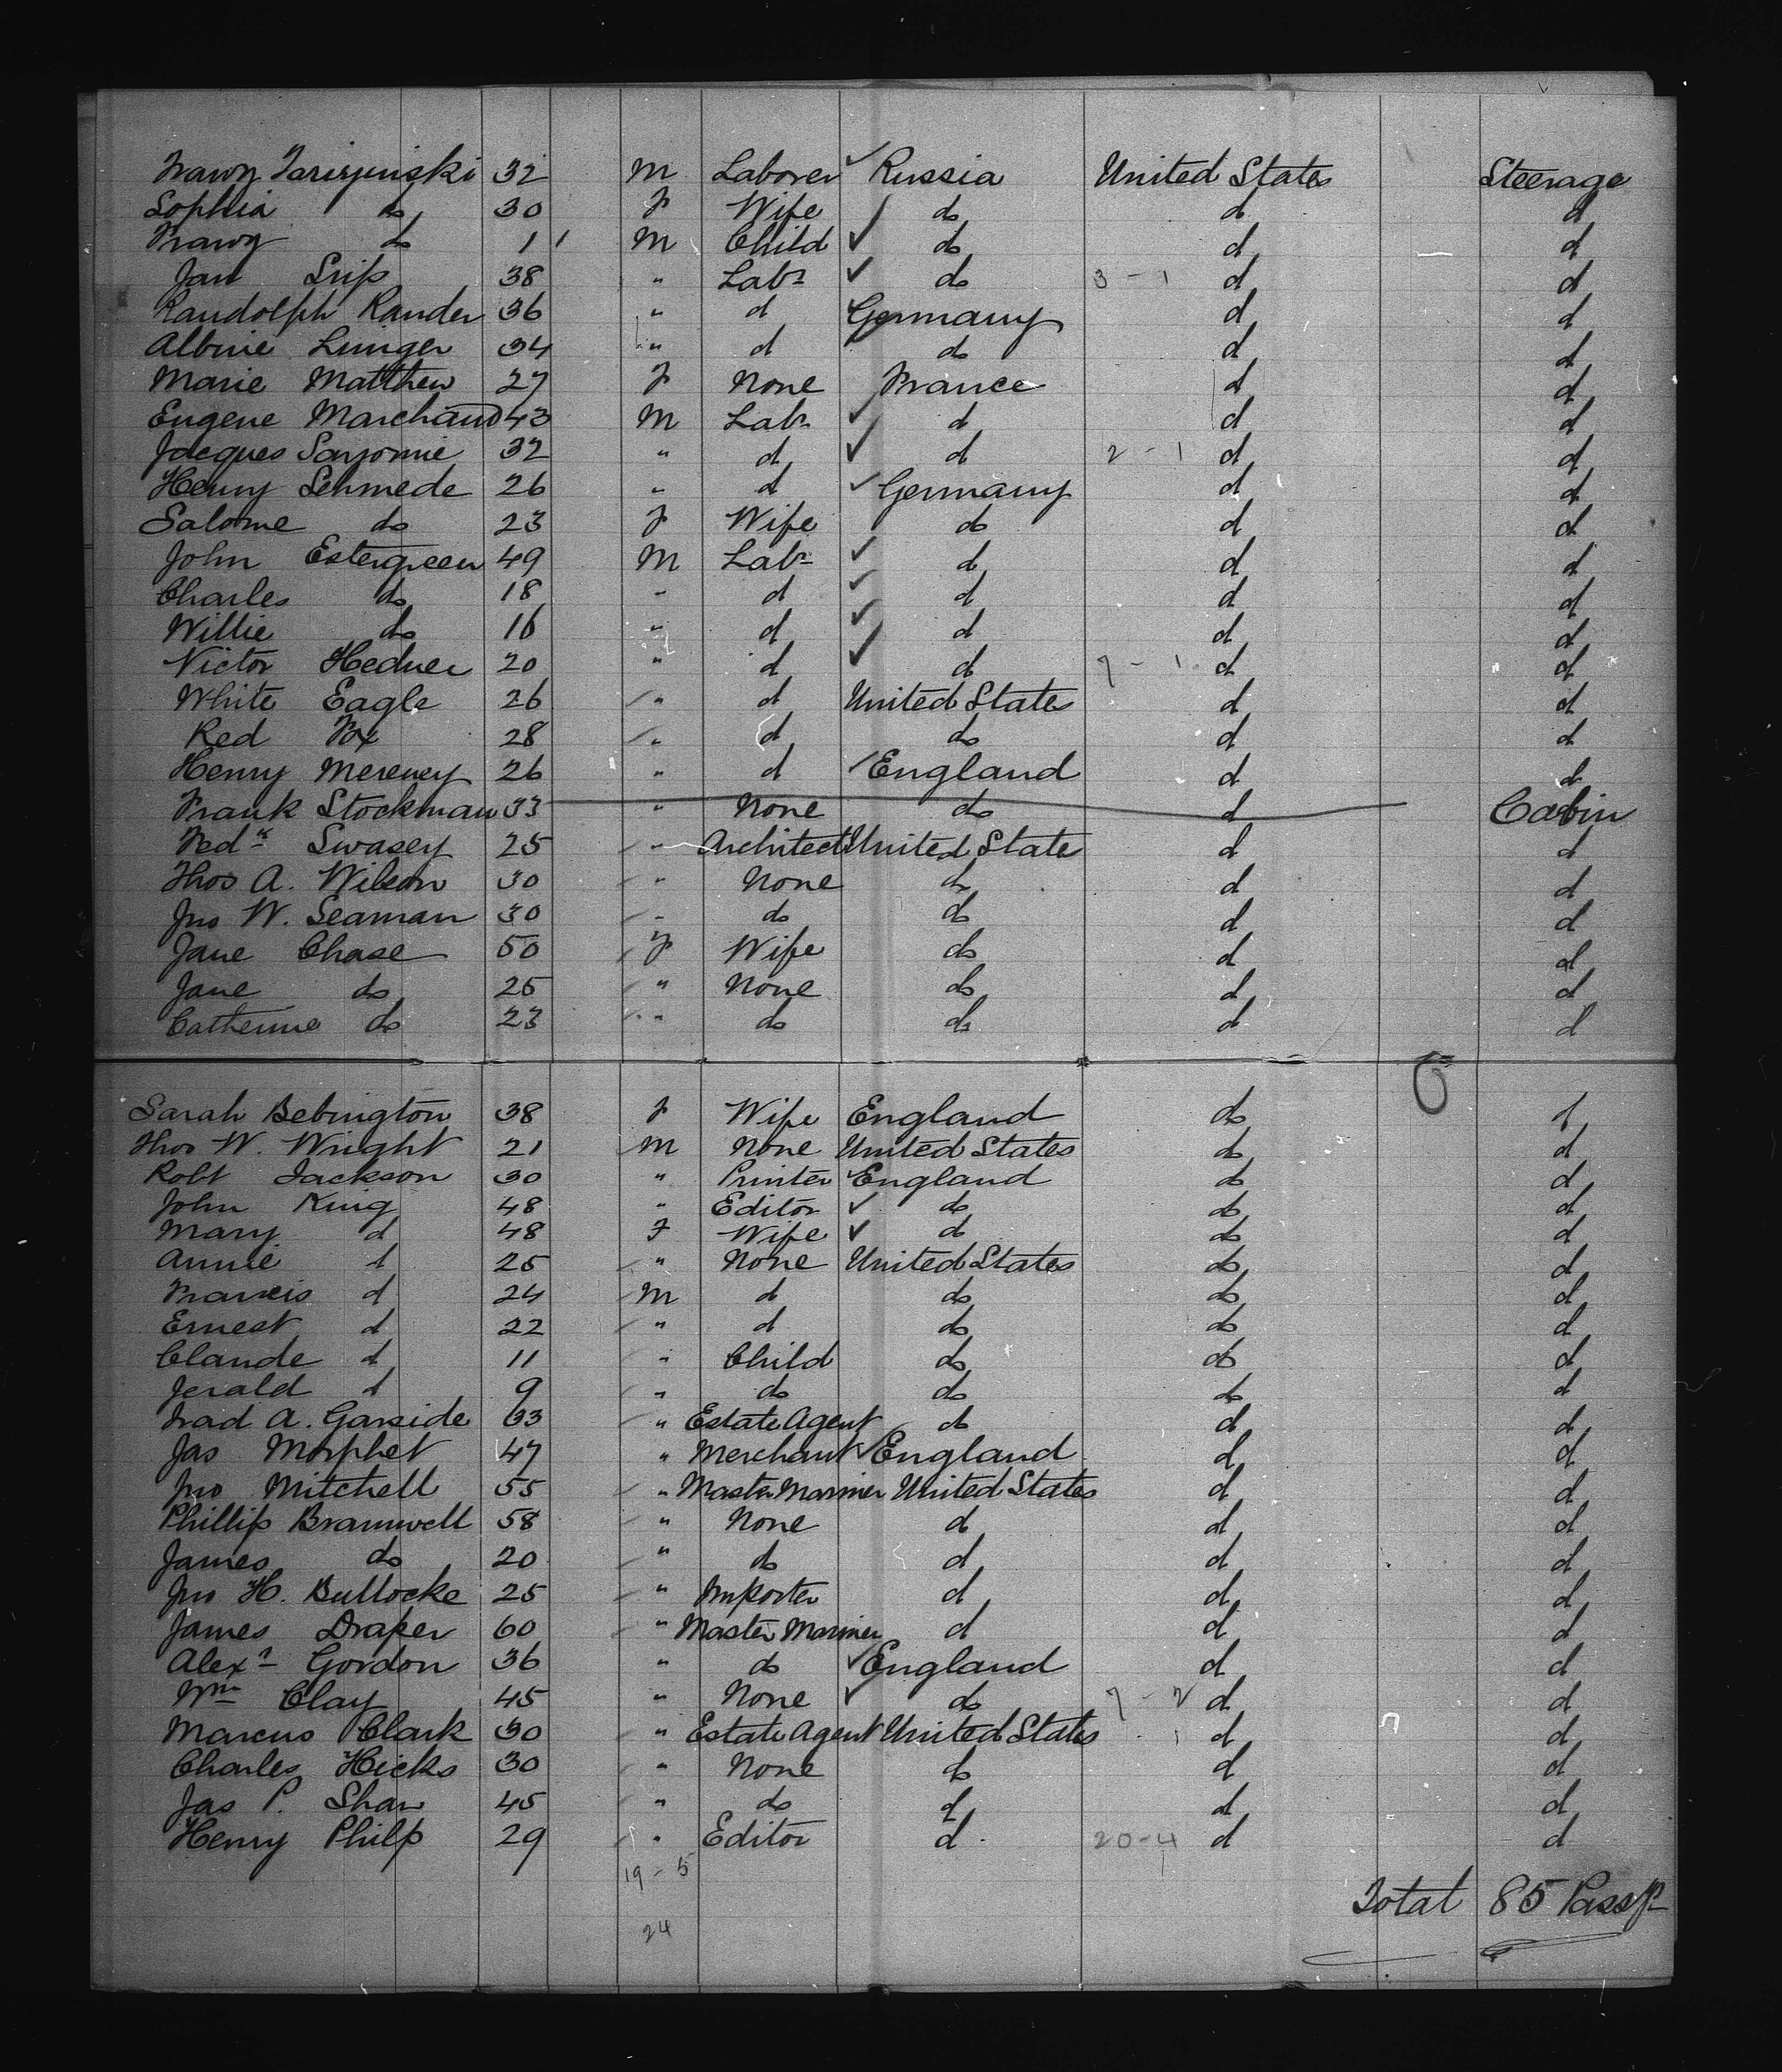 Franz 32 M Laborer Russia United States Steerage
Sophia do 30 F Wife do d d
Franz do 11 M Child do d d
Jan Srip 38 " Labr do 3 - 1 d d
Randolph Rander 36 " d Germany d d
Albine Liniger 34 " d do d d
Marie Matthew 27 F None France d d
Eugene Marchand 43 M Labr d d d
Jacques 32 " d d 2 - 1 d d
Henry Schmede 26 " d Germany d d
Salome do 23 F Wife do d d
John Estergreen 49 M Labr d d d
Charles do 18 " d d d d
Willie do 16 " d d d d
Victor Hedner 20 " d d 7 - 1 d d
White Eagle 26 " d United States d d
Red Fox 28 " d do d d
Henry Mereney 26 " d England d d
Frank Stockman 33 " None do d Cabin
Fedk Swasey 25 " Architect United States d d
Thos A. Wilson 30 " None do d d
Jno W. Seaman 30 " do do d d
Jane Chase 50 F Wife do d d
Jane do 25 " None do d d
Catherine do 23 " do do d d
Sarah Bebington 38 F Wife England do d
Thos W. Wright 21 M None United States do d
Robt Jackson 30 " Printer England do d
John King 48 " Editor do do d
Mary d 48 F Wife do do d
Annie d 25 " None United States do d
Francis d 24 M d do do d
Ernest d 22 " d do do d
Claude d 11 " Child do do d
Jerald d 9 " do do do d
Irad A. Garside 33 " Estate Agent do d d
Jas Morphet 47 " Merchant England d d
Jno Mitchell 55 " Master Mariner United States d d
Phillip Bramwell 58 " None d d d
James do 20 " do d d d
Jno H. Bullocke 25 " Importer d d d
James Draper 60 " Master Mariner d d d
Alexr Gordon 36 " do England d d
Wm Clay 45 " None do 7 - 2 d d
Marcus Clark 30 " Estate Agent United States 1 d d
Charles Hicks 30 " None do d d
Jas P. Shaw 45 " do d d d
Henry Philp 29 " Editor d 20-4 d d
19 - 5
Total 85 Passrs
24